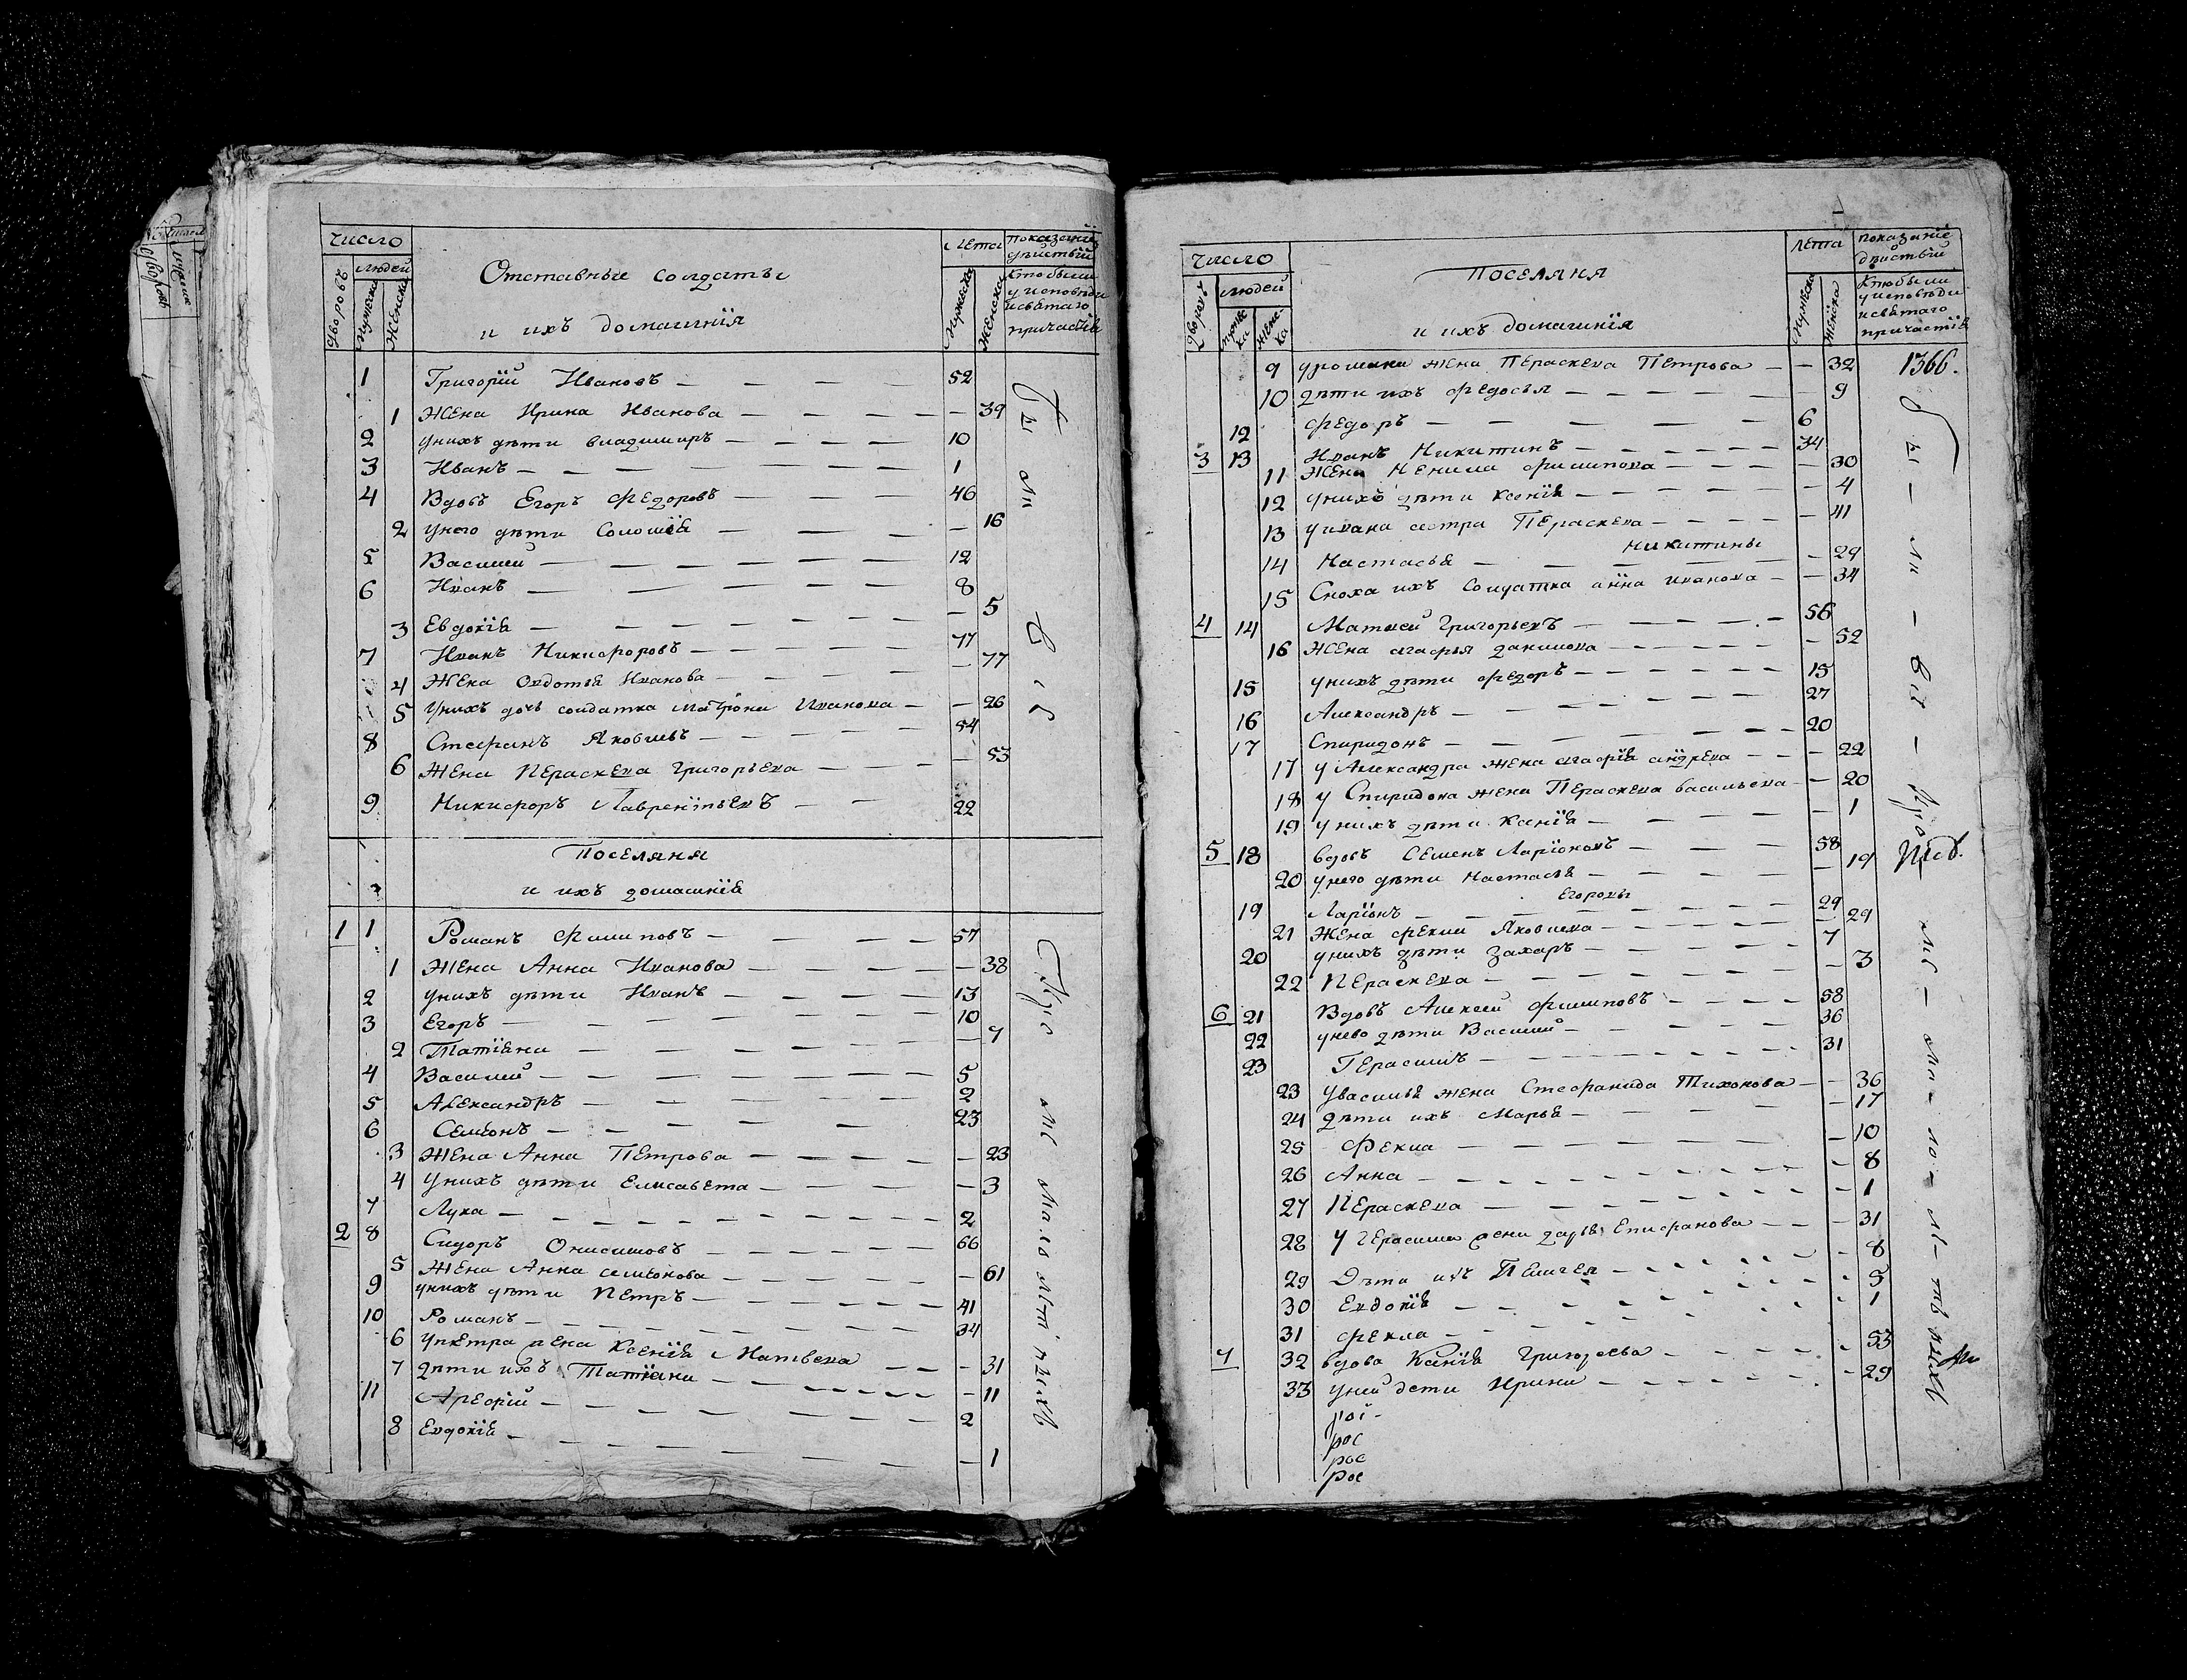 Число Отставные солдаты Лета показанïй дѣйствïй
дворовъ людей мужеска женска и ихъ домашнïя мужеска женска кто были у исповѣди и святаго причастïя
1 Григорïй Ивановъ — — — — 52
1 Жена Ирина Иванова — — — — — 39
2 у нихъ дѣти владимиръ — — — — 10
3 Иванъ — — — — — 1
4 Вдовъ Егоръ Федоровъ — — — 46
2 у него дѣти Соломïя — — — — 16
5 Василий — — — — 12
6 Иванъ — — — — 8
3 Евдокïя — — — — — — 5
7 Иванъ Никифоровъ — — — — — 77
4 Жена Овдотья Иванова — — — — — 77
5 у нихъ дочь солдатка Матрона Иванова — — 26
8 Стефанъ Яковлевъ — — — — 54
6 Жена Пераскева Григорьева — — — — — 53
9 Никифоръ Лаврентьевъ — — 22
Были
Поселяня
и ихъ домашнïя
1 1 Романъ Филиповъ — — — — 57
1 Жена Анна Иванова — — — — — 38
2 у нихъ дѣти Иванъ — — — — 13
3 Егоръ — — — — — 10
2 Татïяна — — — — — — 7
4 Василий — — — — — 5
5 Александръ — — — — 2
6 Семïонъ — — — — 23
3 Жена Анна Петрова — — — — — 23
4 У нихъ дѣти Елисавета — — — — 3
7 Лука — — — — — — — — 2
2 8 Сидоръ Онисимовъ — — — — — — 66
5 Жена Анна семïонова — — — — — 61
9 у нихъ дѣти Петръ — — — — — — 41
10 Романъ — — — — — — — 34
6 у петра жена Ксенïя Матвева — — — 31
7 дѣти ихъ Татïяна — — — — — — 11
11 Арефïй — — — — — — 2
8 Евдокïя — — — — — — 1
Число Поселяня Лета показанïе дѣйствïй
дворовъ людей мужеска женска и ихъ домашнïя мужеска женска кто были у исповѣди и святаго причастïя
9 у романа жена Пераскева Петрова — — 32 1366.
10 дѣти ихъ Федосья — — — — — 9
12 Федоръ — — — — — 6
3 13 Иванъ Никитинъ — — — — 34
11 Жена Филипова — — — — 30
12 у нихъ дѣти Ксенïя — — — — — 4
13 у ивана сестра Пераскева — — — — — 41
Никитины
14 Настасья — — — — — 29
15 Сноха ихъ Солдатка анна иванова — — 34
4 14 Матвей Григорьевъ — — — — 56
16 Жена агафья данилова — — — — — 52
15 у нихъ дѣти Федоръ — — — — — 15
16 Александръ — — — — — 27
17 Спиридонъ — — — — — — 20
17 у Александра жена агафïя андрева — — — 22
18 у Спиридона жена Пераскева васильева — — 20
19 у нихъ дѣти Ксенïя — — — — — 1
5 18 вдовъ Семенъ Ларïоновъ — — — 58
20 у него дѣти Настасья — — — — — 19
Егоровы
19 Ларïонъ — — — — — — — 29
21 Жена фекла Яковлева — — — — — 29
20 у нихъ дѣти Захаръ — — — — — 7
22 Пераскева — — — — — — 3
6 21 Вдовъ Алексей Филиповъ — — — — 58
22 у нево дѣти Василий — — — — — 36
23 Герасимъ — — — — — — 31
23 у василья жена Стефанида Тихонова — — 36
24 дѣти ихъ Марья — — — — — 17
25 Фекла — — — — — — 10
26 Анна — — — — — — — 8
27 Пераскева — — — — — — 1
28 у Герасима жена дарья Епифанова — — — 31
29 Дѣти ихъ Пелагея — — — — — — 8
30 Евдокïя — — — — — — 5
31 Фекла — — — — — — 1
7 32 вдова Ксенïя Григорьева — — — — — 53
33 у ней дети Ирина — — — — — — 29
рос
рос
рос
Бы — ли — — — Кро — ме — ма — ло — л — тныхъ